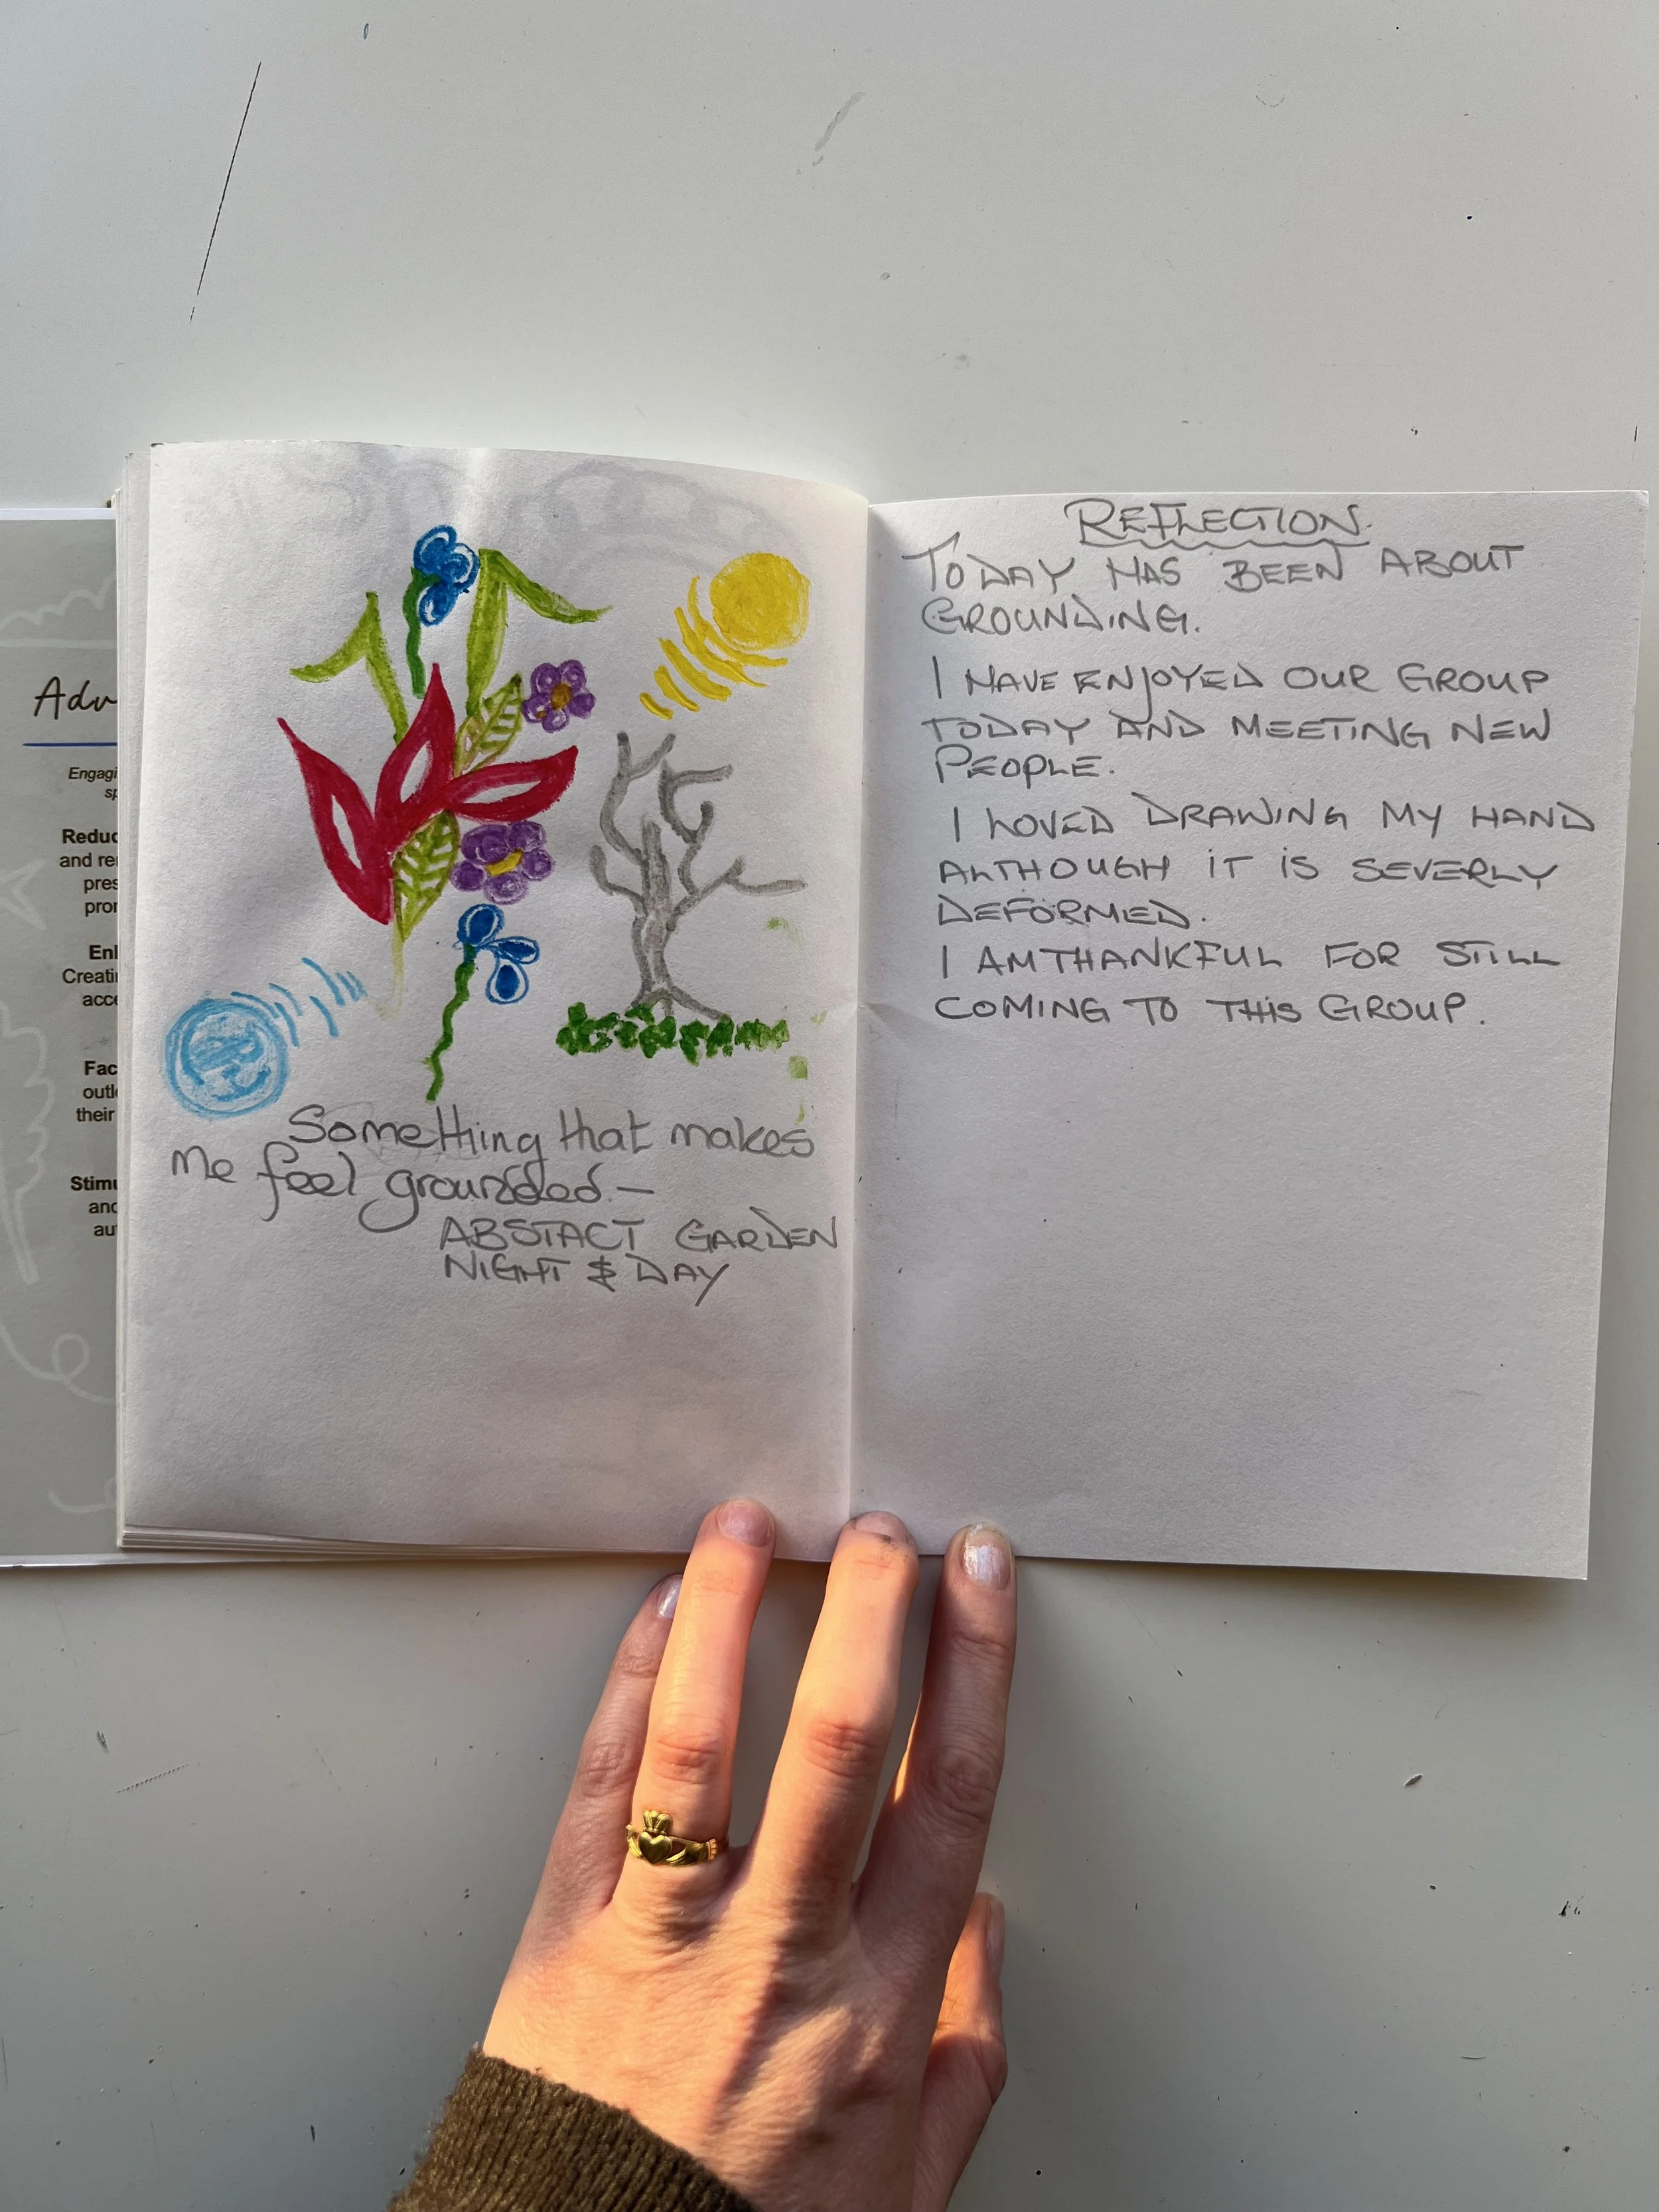 Adv
Engagi
sp
Reduc
and re
pres
pror
Enl
Creati
acce
Fac
outl
their
Stimu
and
au
Something that makes
me feel grounded –
ABSTACT GARDEN
NIGHT & DAY
REFLECTION.
TODAY HAS BEEN ABOUT
GROUNDING.
I HAVE ENJOYED OUR GROUP
TODAY AND MEETING NEW
PEOPLE.
I LOVED DRAWING MY HAND
ALTHOUGH IT IS SEVERLY
DEFORMED.
I AM THANKFUL FOR STILL
COMING TO THIS GROUP.